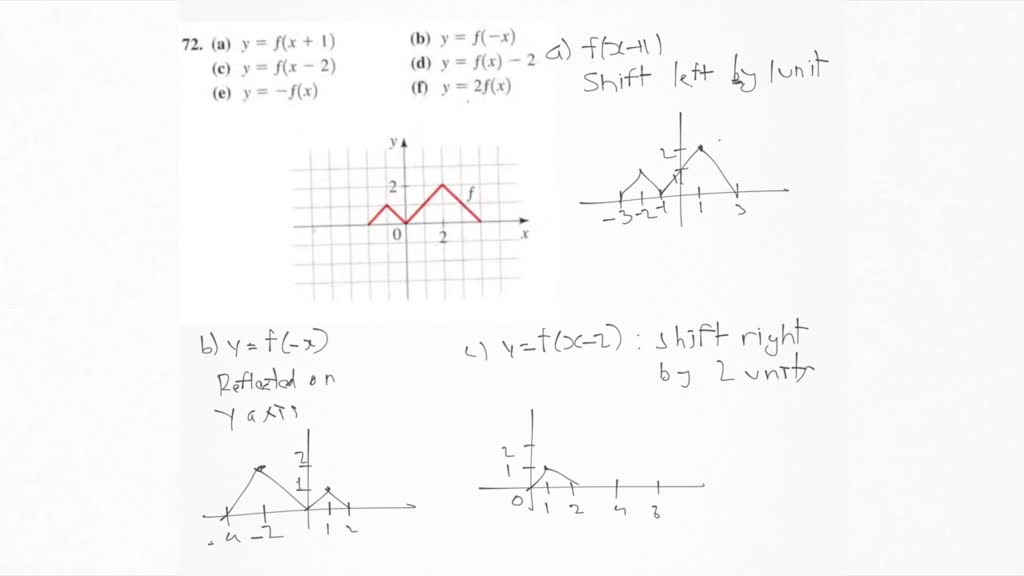 72. (a) y = f(x + 1) (b) y = f(-x)
(c) y = f(x - 2) (d) y = f(x) - 2
(e) y = -f(x) (f) y = 2f(x)
y
2
f
0
2
x
a) f(x+1)
Shift left by 1 unit
2
1
-3 -2 -1 1 3
b) y = f(-x)
Reflected on
y axis
2
1
-4 -2 1 2
c) y = f(x-2) : shift right
by 2 units
2
1
0 1 2 4